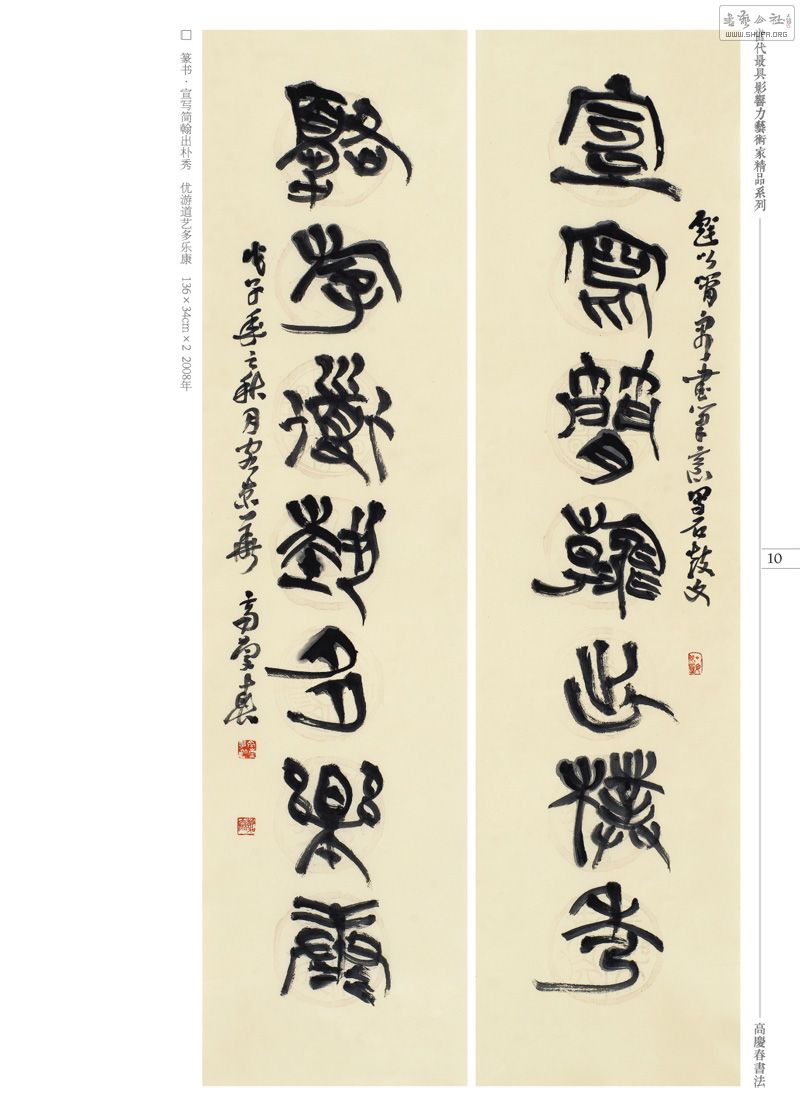 書藝公社
WWW.SHUFA.ORG
當代最具影響力藝術家精品系列
10
高慶春書法
畫筆意寫石鼓文
宣寫簡翰出樸秀
優游道藝多樂康
戊子年之秋月客京華 高慶春
□ 篆书·宣写简翰出朴秀 优游道艺多乐康 136×34cm×2 2008年